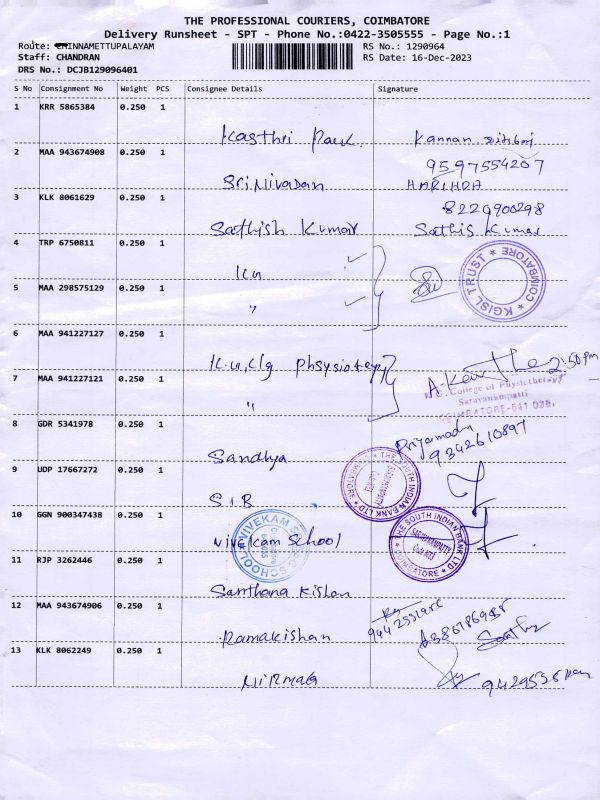 THE PROFESSIONAL COURIERS, COIMBATORE
Delivery Runsheet - SPT - Phone No.:0422-3505555 - Page No.:1
Route: CHINNAMETTUPALAYAM
RS No.: 1290964
Staff: CHANDRAN
RS Date: 16-Dec-2023
DRS No.: DCJB129096401
S No Consignment No Weight PCS Consignee Details Signature
1 KRR 5865384 0.250 1
Kasthri Park Kannan
9597554207
2 MAA 943674908 0.250 1
Srinivasan HARIHRA
8220900298
3 KLK 8061629 0.250 1
Sathish Kumar Sathis Kumar
4 TRP 6750811 0.250 1
K.G
KGISL TRUST * COIMBATORE *
5 MAA 298575129 0.250 1
"
6 MAA 941227127 0.250 1
K.G, Clg Physiotepy
2:50 pm
7 MAA 941227121 0.250 1
"
College of Physiotherapy
Saravanampatti
COIMBATORE-641 035.
8 GDR 5341978 0.250 1
Sandhya Priyamadu
9342610897
9 UDP 17667272 0.250 1
S.I.B
THE SOUTH INDIAN BANK LTD * COIMBATORE *
10 GGN 900347438 0.250 1
Vivekam School
THE SOUTH INDIAN BANK LTD * COIMBATORE *
11 RJP 3262446 0.250 1
Santhana Kishan
12 MAA 943674906 0.250 1
Ramakishan
13 KLK 8062249 0.250 1
Nirmala